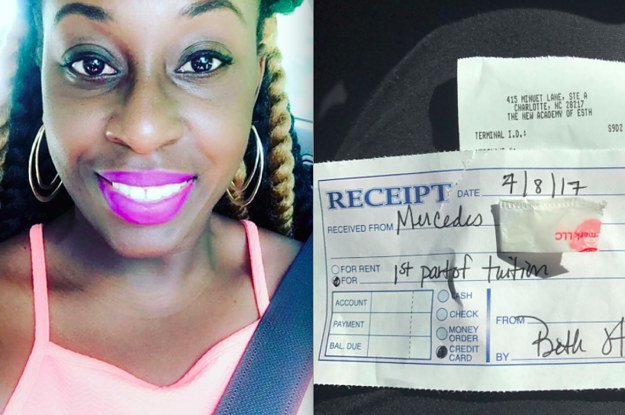 415 MINUET LANE, STE A
CHARLOTTE, NC 28217
THE NEW ACADEMY OF ESTH
TERMINAL I.D.:
RECEIPT DATE 7/8/17
RECEIVED FROM Mercedes
mark LLC
FOR RENT
FOR 1st part of tuition
ACCOUNT
PAYMENT
BAL. DUE
CASH
CHECK
MONEY
ORDER
CREDIT
CARD
FROM
BY Beth